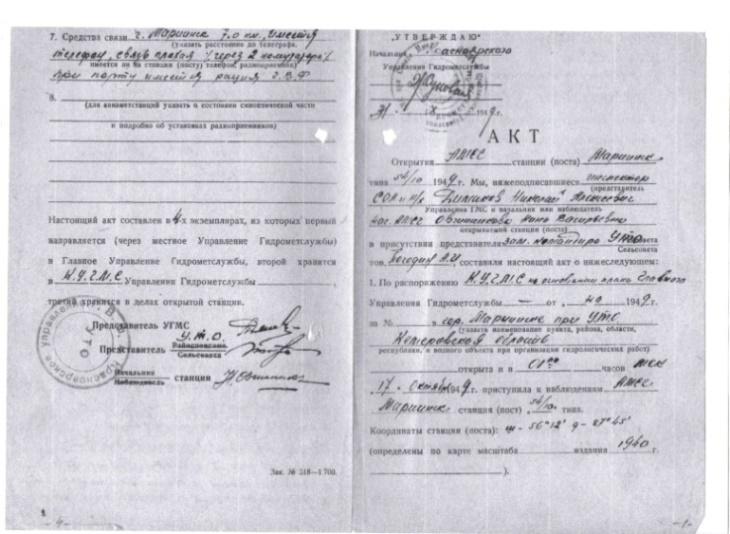 7. Средства связи г. Мариинск 7.0 км, имеется
(указать расстояние до телеграфа,
телефон, связь слабая (через 2 коммутатора)
имеется ли на станции (посту) телефон, радиоприемник)
при порту имеется рация Г.В.Ф
8.
(для авиаметстанций указать о состоянии синоптической части
и подробно об установках радиоприемников)
Настоящий акт составлен в 4х экземплярах, из которых первый
направляется (через местное Управление Гидрометслужбы)
в Главное Управление Гидрометслужбы, второй хранится
в К.У.Г.М.С Управления Гидрометслужбы
третий хранится в делах открытой станции.
Представитель УГМС
У.Т.О.
Представитель Райисполкома
Сельсовета
Начальник
Наблюдатель станции
Зак. № 218—1700.
-4-
„УТВЕРЖДАЮ“
Начальник Красноярского
Управления Гидрометслужбы
Жуковой
31 X 1949г.
АКТ
Открытия АМСС станции (поста) Мариинск
типа 54/10 1949 г. Мы, нижеподписавшиеся инспектор
(представитель
Николай Алексеевич
Управления ГМС и начальник или наблюдатель
нач. АМСС Овчинникова Нина Васильевна
открываемой станции (поста)
в присутствии представителя зам. командира УТО
Сельсовета
тов. составили настоящий акт о нижеследующем:
1. По распоряжению К.У.Г.М.С на основании плана Главного
Управления Гидрометслужбы — от „ 40 194 г.
за № в гор. Мариинске при УТО
(указать наименование пункта, района, области,
Кемеровской области
республики, и водного объекта при организации гидрологических работ)
открыта и в 01 часов мск
17 - Октября 1949 г. приступила к наблюдениям АМСС
Мариинск станция (пост) 54/10 типа.
Координаты станции (поста): ш - 56°12' д - 87°45'
(определены по карте масштаба издания 1940 г.
).
-1-